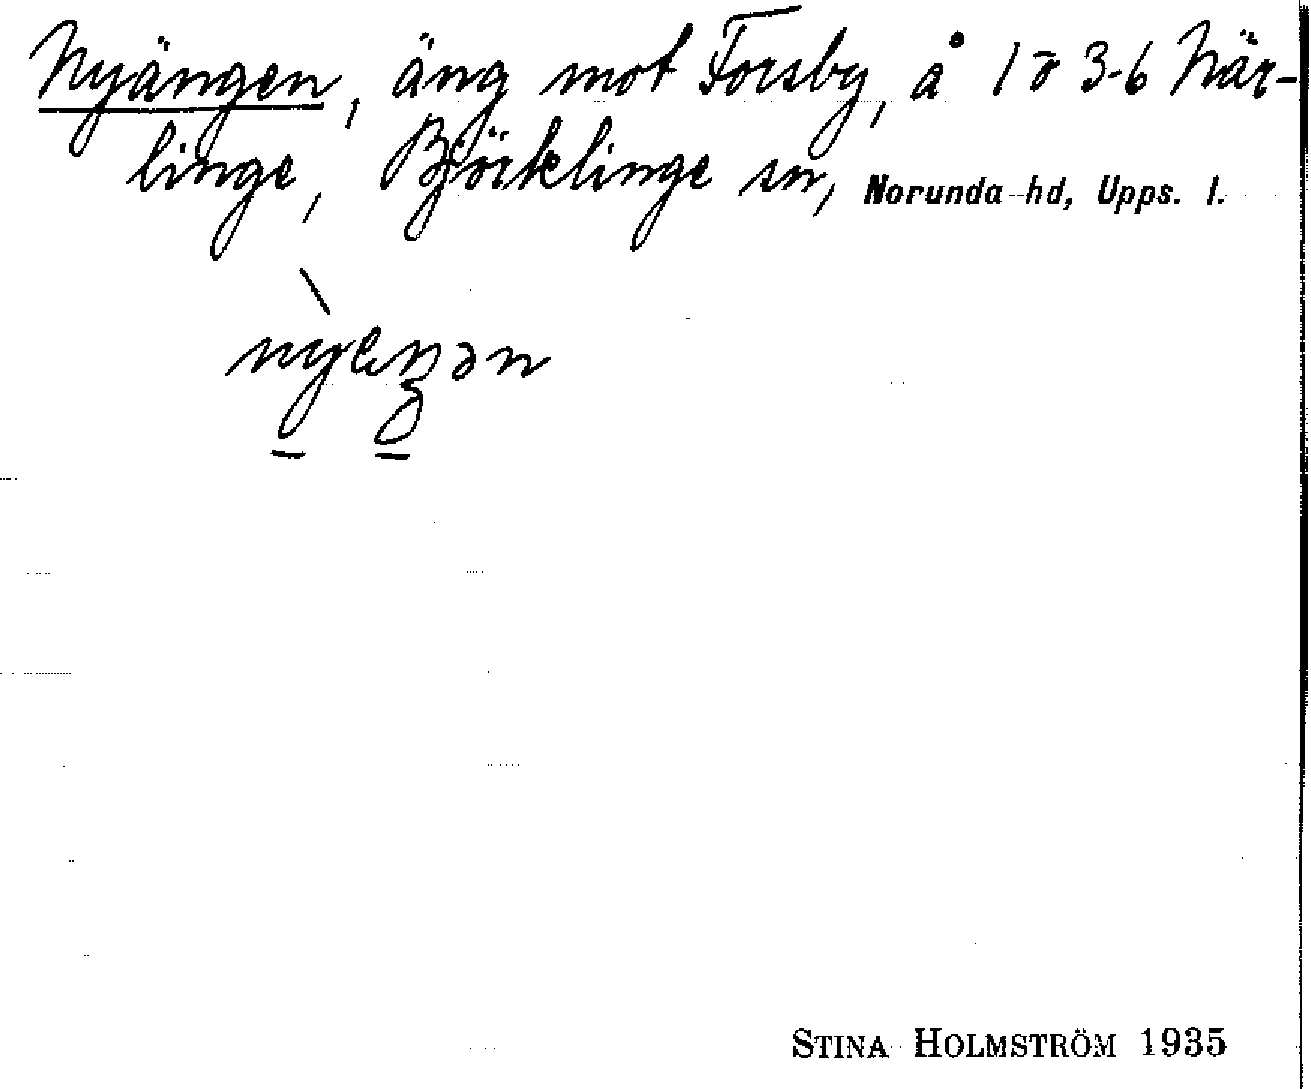 Nyängen, äng mot Forsby, å 1 o 3-6 När-
linge, Björklinge sn, Norunda hd, Upps. l.
nỳleŋən
STINA HOLMSTRÖM 1935